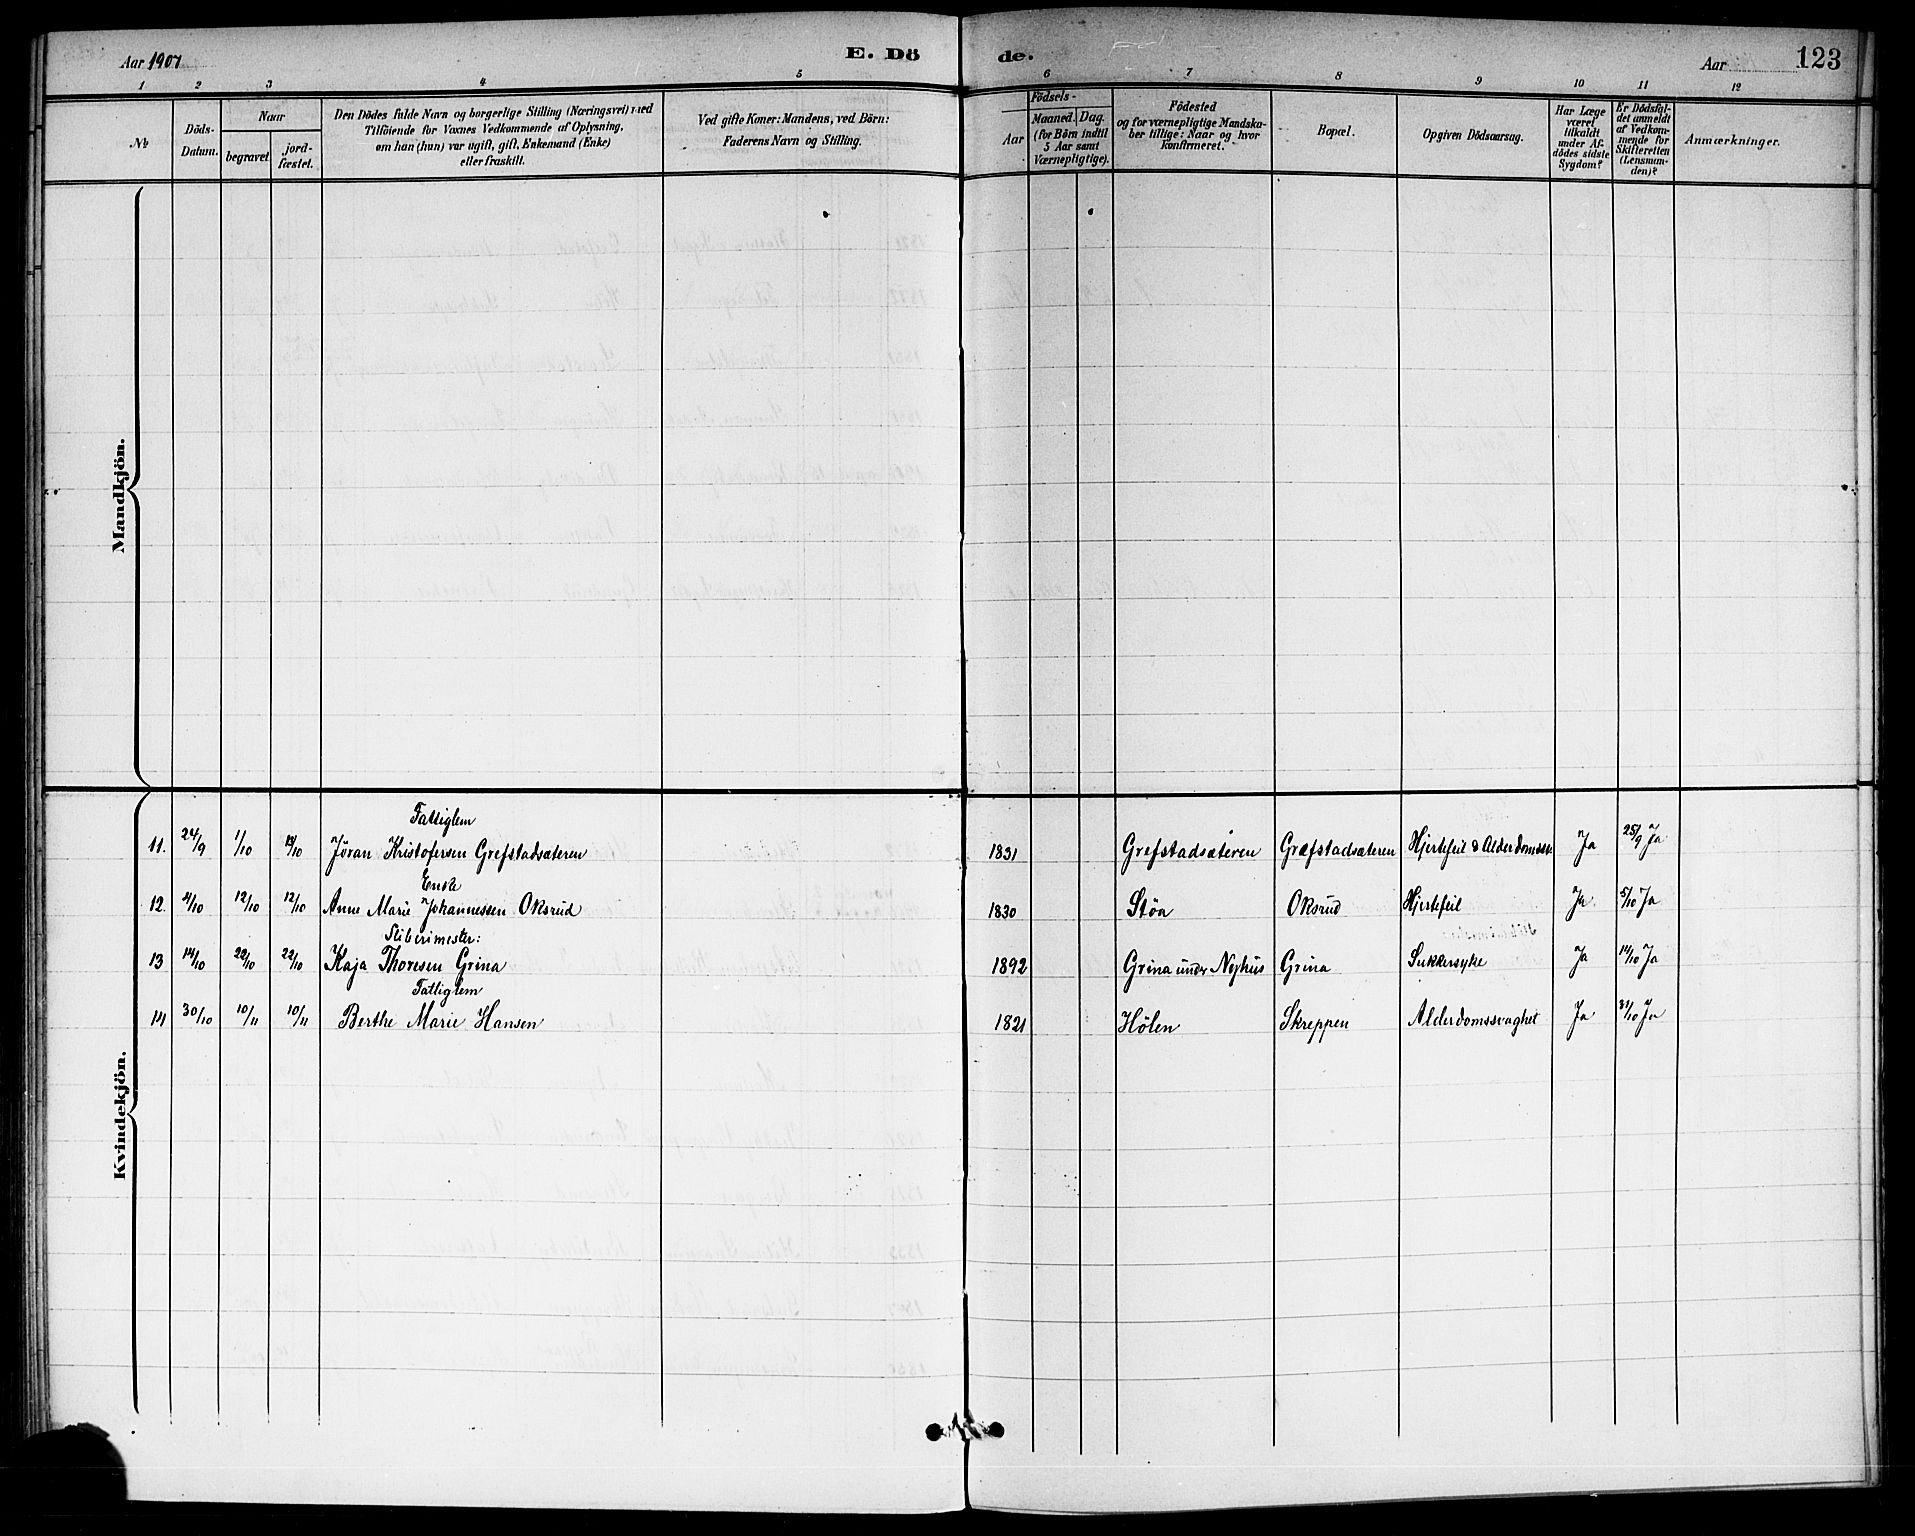 Aar 1907
E. Dö
de.
Aar
123
1 2 3 4 5 6 7 8 9 10 11 12
№
Döds-Datum.
Naar
begravet
jordfæstet.
Den Dödes fulde Navn og borgerlige Stilling (Næringsvei) med
Tilföiende for Voxnes Vedkommende af Oplysning,
om han (hun) var ugift, gift, Enkemand (Enke)
eller fraskilt.
Ved gifte Koner: Mandens, ved Börn:
Faderens Navn og Stilling.
Aar
Födsels-
Maaned. Dag.
(for Börn indtil
5 Aar samt
Værnepligtige).
Födested
og for værnepligtige Mandska-
ber tillige: Naar og hvor
konfirmeret.
Bopæl.
Opgiven Dödsaarsag.
Har Læge
været
tilkaldt
under Af-
dödes sidste
Sygdom?
Er Dödsfal-
det anmeldt
af Vedkom-
mende for
Skifteretten
(Lensman-
den)?
Anmærkninger.
Mandkjön.
Kvindekjön.
Fattiglem
11. 24/9 1/10 /10 Jöran Kristofersen Grefstadsæteren 1831 Grefstadsæteren Græfstadsæteren Hjertefeil & Alderdomssv. Ja 25/9 Ja
Enke
12. 4/10 12/10 12/10 Anne Marie Johannessen Oksrud 1830 Stöa Oksrud Hjertefeil Ja 5/10 Ja
Sliberimester:
13 14/10 22/10 22/10 Kaja Thoresen Grina 1892 Grina under Nøphus Grina Sukkersyke Ja 14/10 Ja
Fattiglem
14 30/10 10/11 10/11 Berthe Marie Hansen 1821 Hölen Skreppen Alderdomssvaghet Ja 31/10 Ja